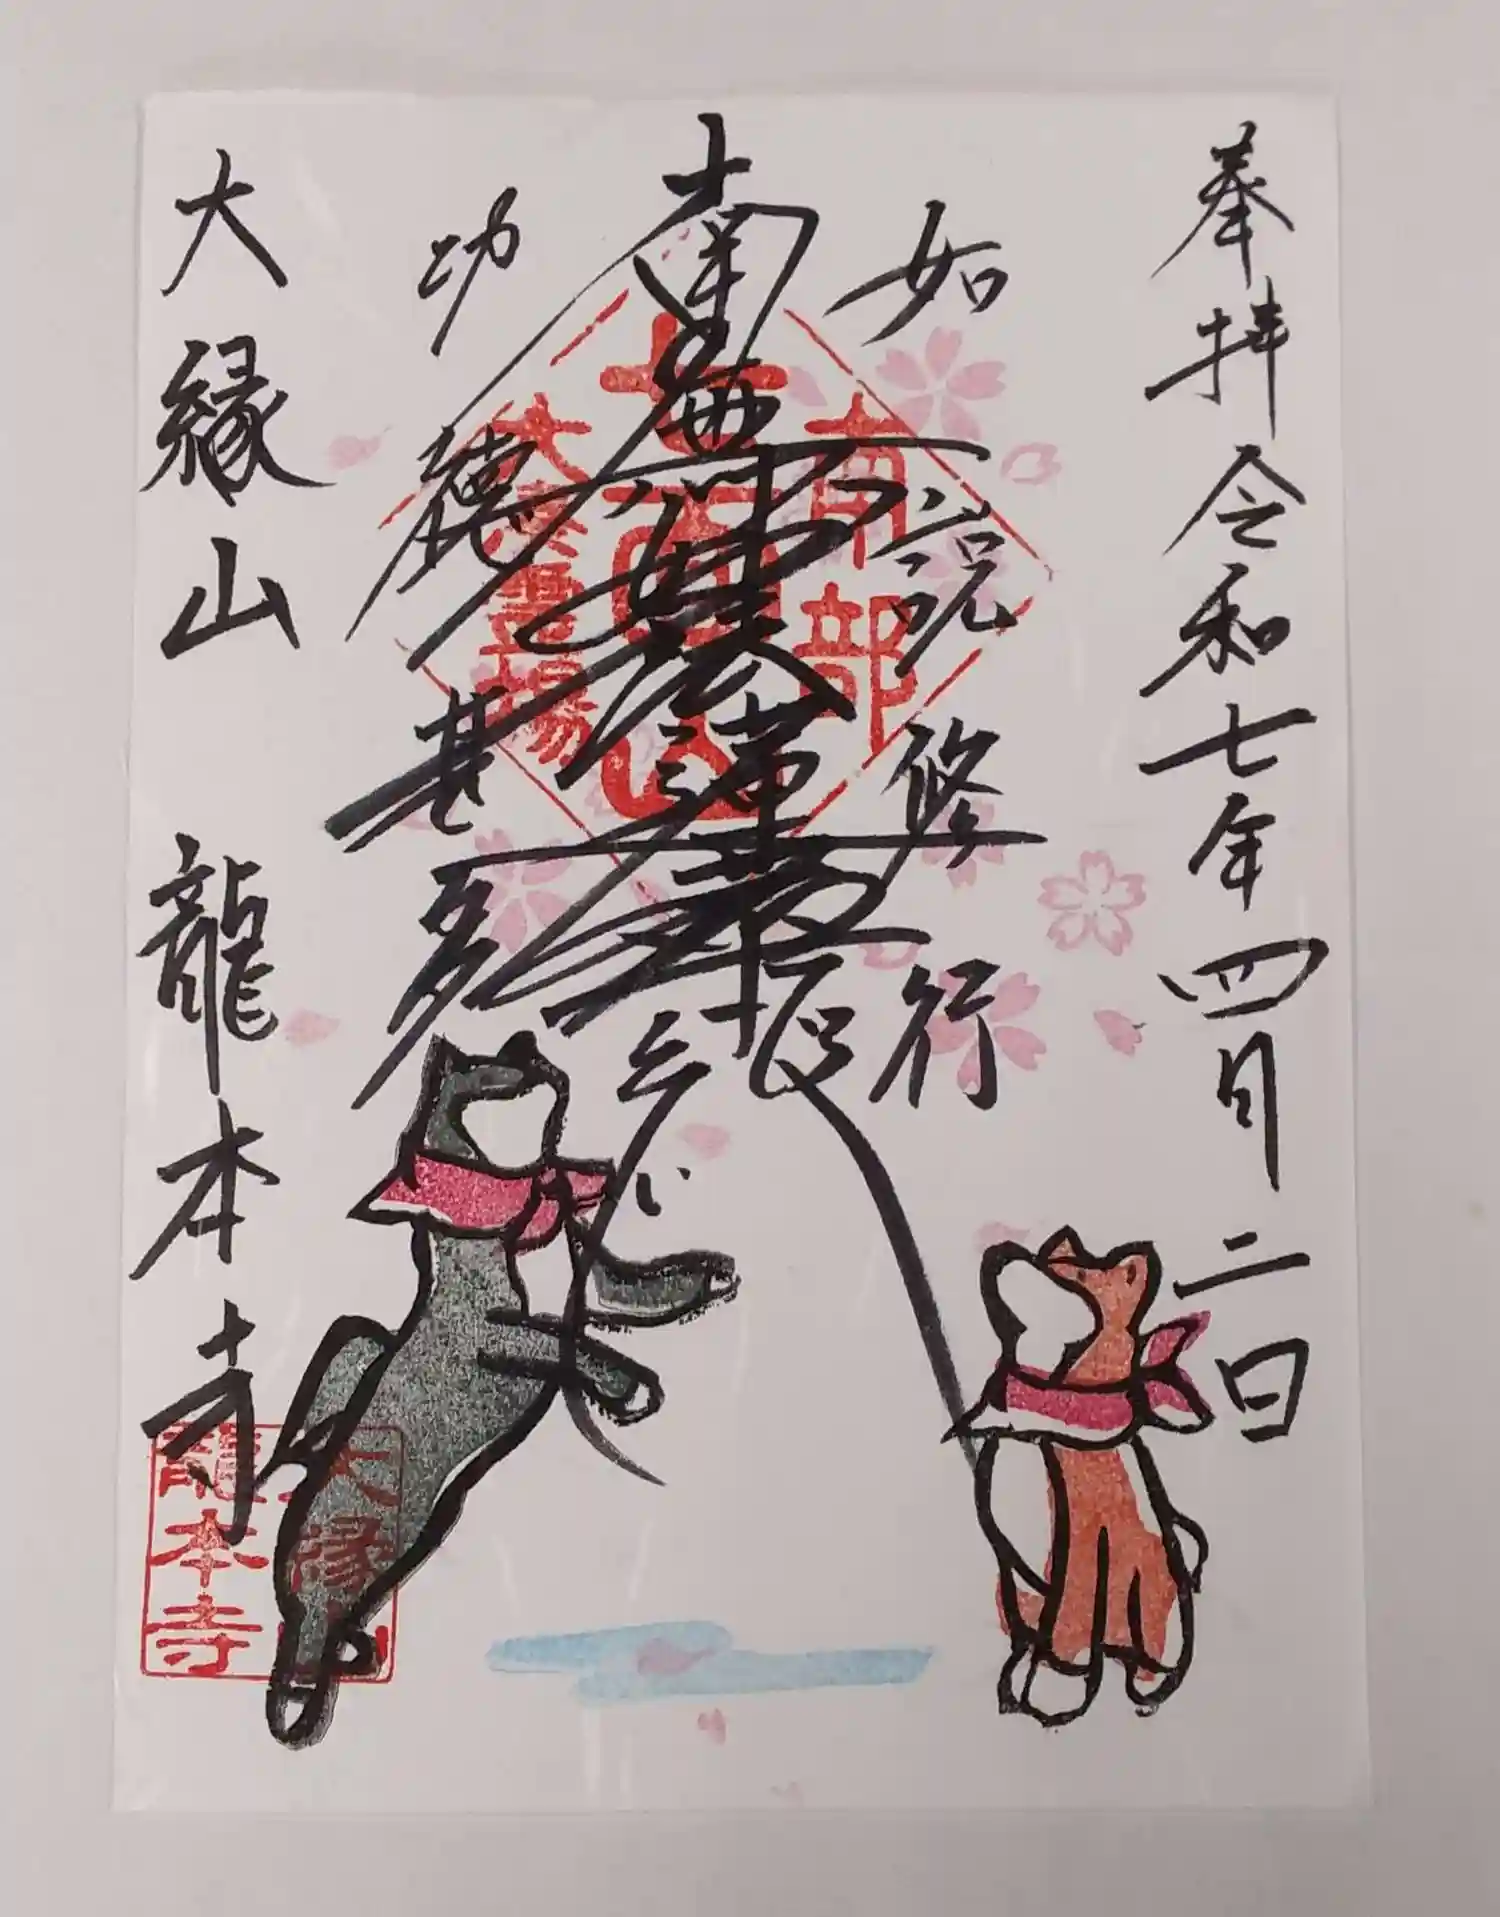 奉拝 令和七年四月二日
如説修行
南無妙法蓮華経
功徳甚多
大縁山 龍本寺
南部
七面山
大縁山
龍本寺